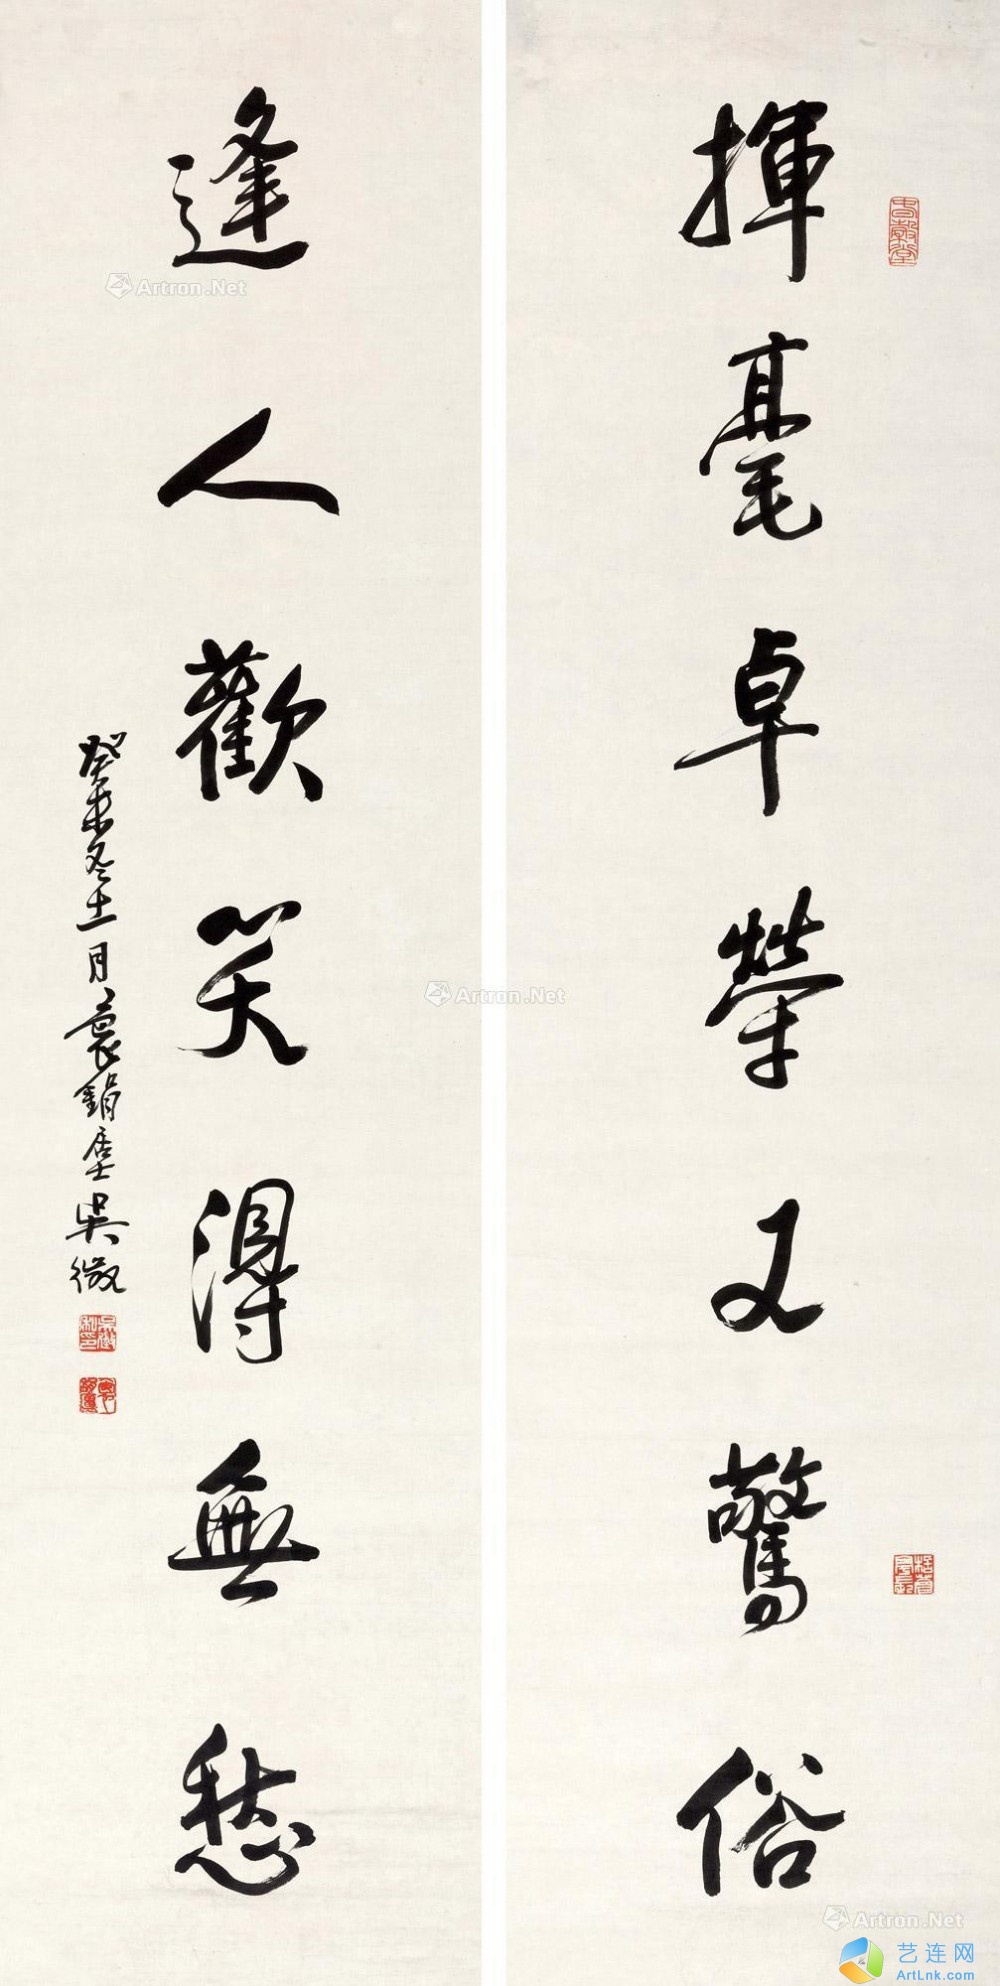 揮毫卓犖又驚俗
逢人歡笑得無愁
癸未冬十一月袌鋗居士吳徵
Artron.Net
Artron.Net
Artron.Net
艺连网
ArtLnk.com